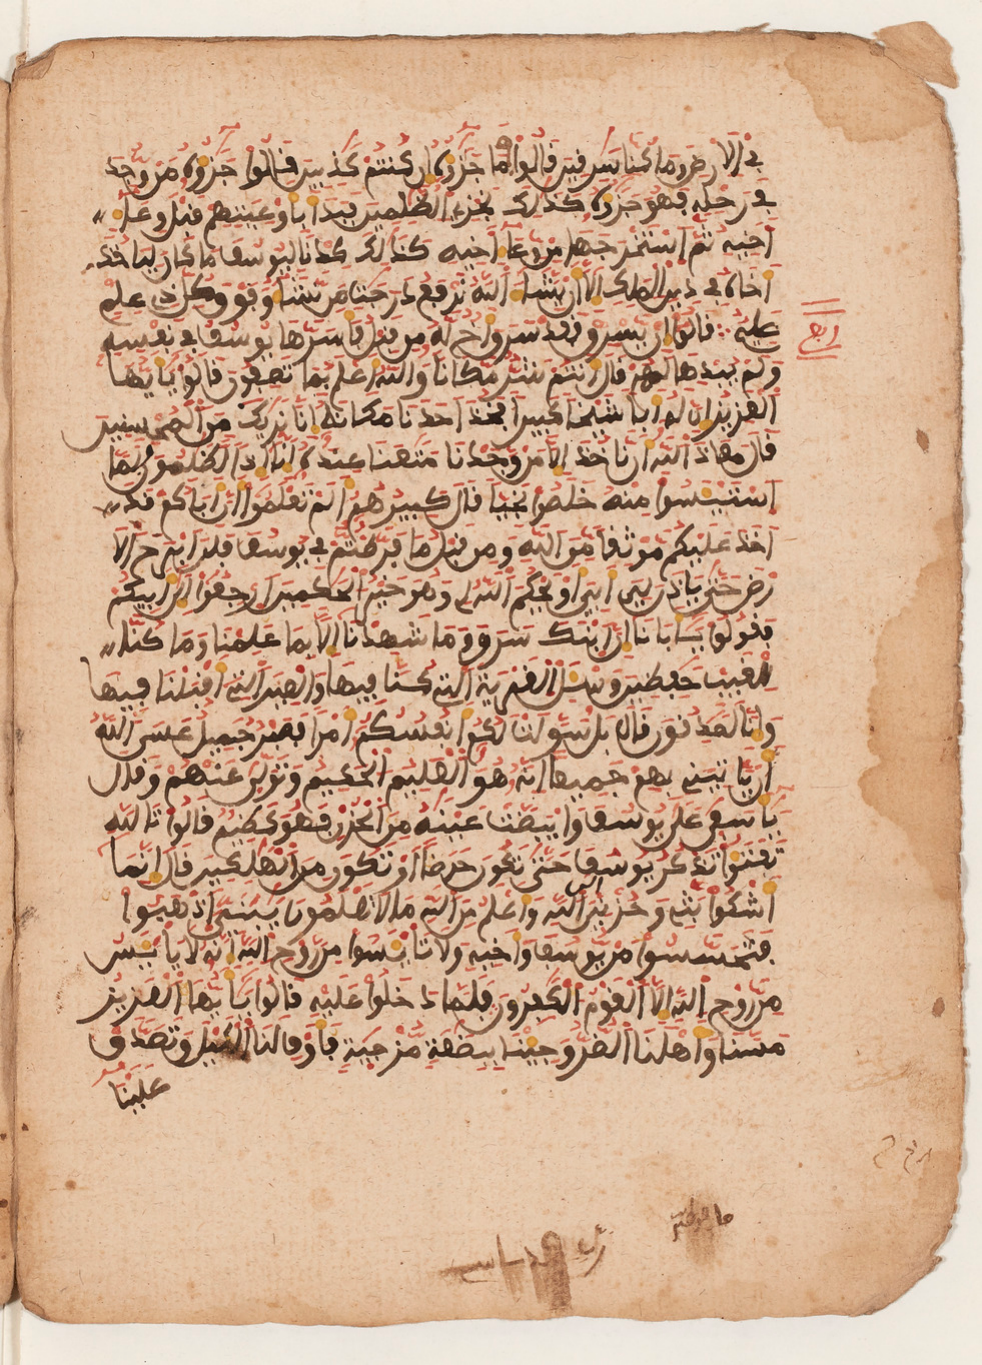 في الارض وما كنا سرفين قالوا فما جزؤه ان كنتم كذبين قالوا جزؤه من وجد
في رحله فهو جزؤه كذلك نجزي الظلمين فبدا باوعيتهم قبل وعا
اخيه ثم استخرجها من وعا اخيه كذلك كدنا ليوسف ما كان لياخذ
اخاه في دين الملك الا ان يشا الله نرفع درجت من نشا وفوق كل ذي علم
عليم قالوا ان يسرق فقد سرق اخ له من قبل فاسرها يوسف في نفسه
ولم يبدها لهم قال انتم شر مكانا والله اعلم بما تصفون قالوا يايها
العزيز ان له ابا شيخا كبيرا فخذ احدنا مكانه انا نريك من المحسنين
قال معاذ الله ان ناخذ الا من وجدنا متعنا عنده انا اذا لظلمون فلما
استيئسوا منه خلصوا نجيا قال كبيرهم الم تعلموا ان اباكم قد
اخذ عليكم موثقا من الله ومن قبل ما فرطتم في يوسف فلن ابرح الا
رض حتى ياذن لي ابي او يحكم الله لي وهو خير الحكمين ارجعوا الى ابيكم
فقولوا يابانا ان ابنك سرق وما شهدنا الا بما علمنا وما كنا
للغيب حفظين وسئل القرية التي كنا فيها والعير التي اقبلنا فيها
وانا لصدقون قال بل سولت لكم انفسكم امرا فصبر جميل عسى الله
ان ياتيني بهم جميعا انه هو العليم الحكيم وتولى عنهم وقال
ياسفى على يوسف وابيضت عينه من الحزن فهو كظيم قالوا تالله
تفتؤا تذكر يوسف حتى تكون حرضا او تكون من الهلكين قال انما
اشكوا بثي وحزني الى الله واعلم من الله ما لا تعلمون يبني اذهبوا
فتحسسوا من يوسف واخيه ولا تايئسوا من روح الله انه لا يايئس
من روح الله الا القوم الكفرون فلما دخلوا عليه قالوا يايها العزيز
مسنا واهلنا الضر وجئنا ببضعة مزجية فاوف لنا الكيل وتصدق
علينا